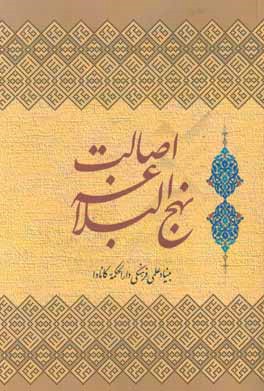 اصالت
نهج البلاغه
بنیاد علمی فرهنگی دارالحکمة کانادا